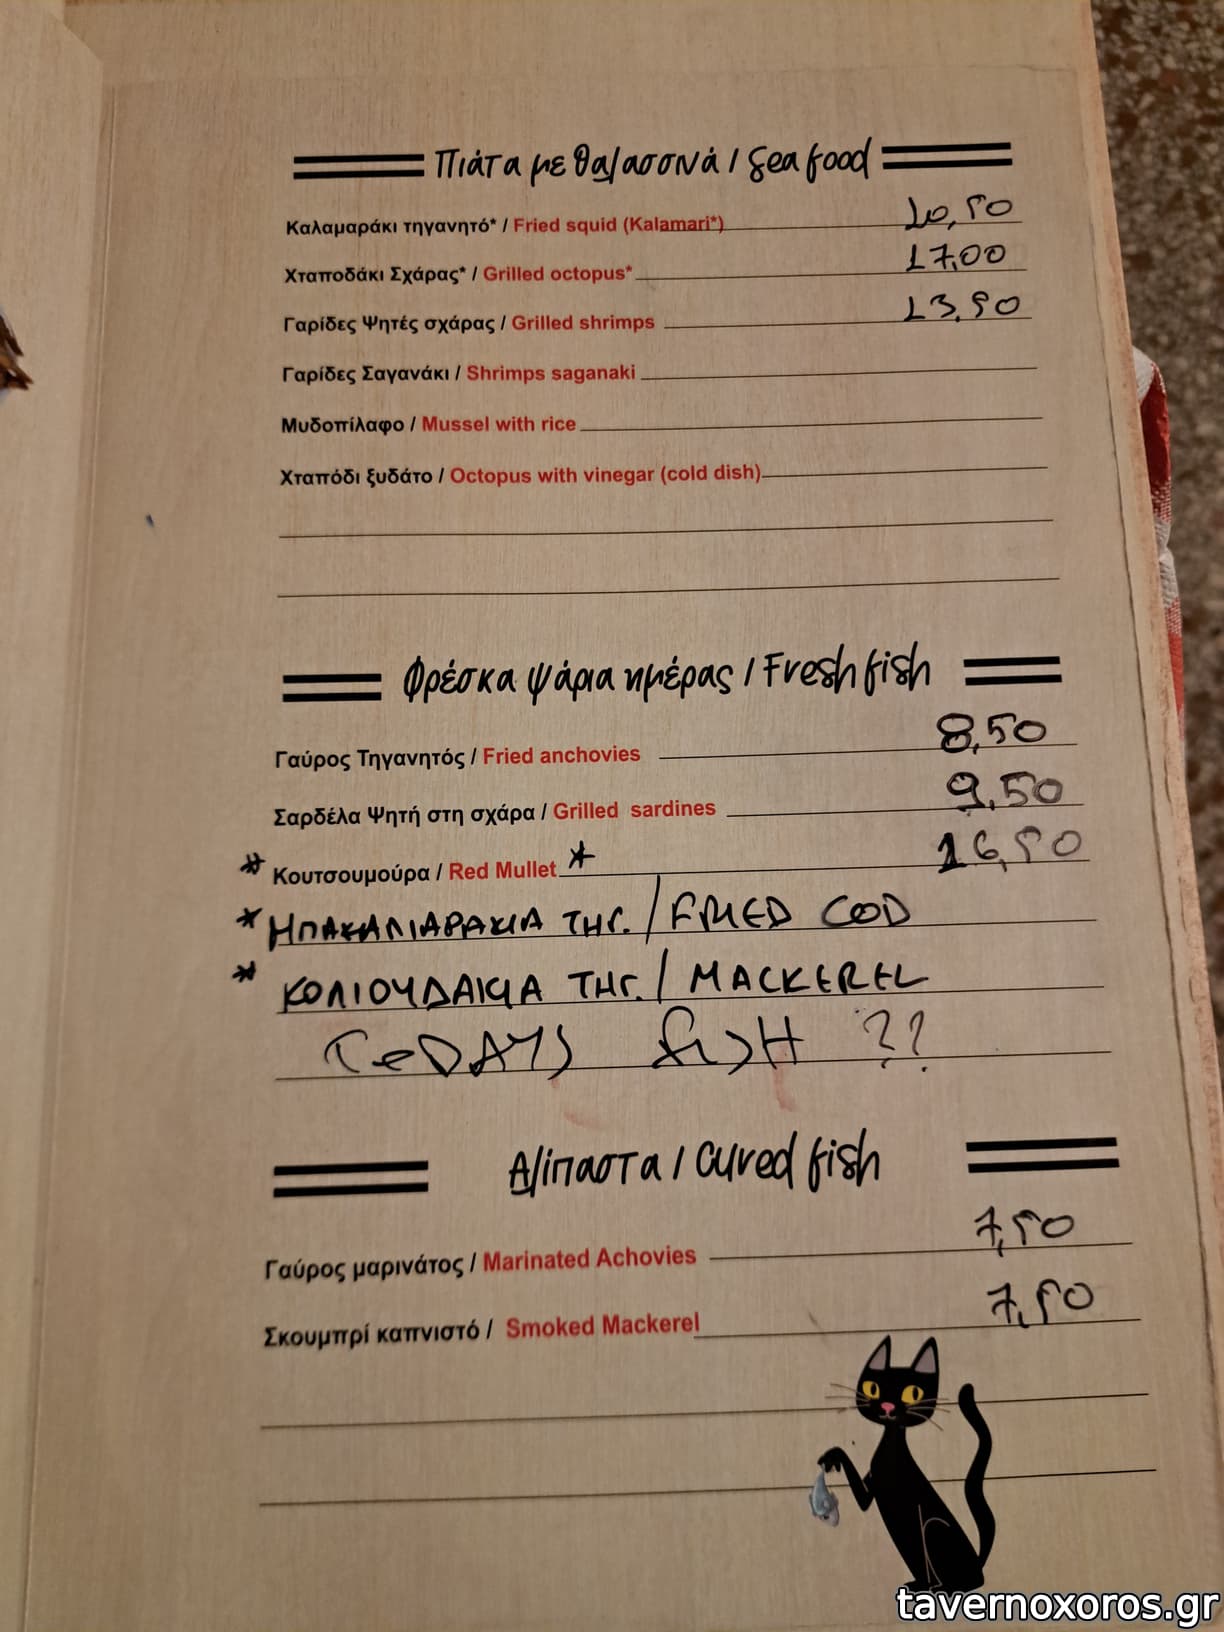 Πιάτα με θαλασσινά / Sea food
Καλαμαράκι τηγανητό* / Fried squid (Kalamari*) 10,50
Χταποδάκι Σχάρας* / Grilled octopus* 17,00
Γαρίδες Ψητές σχάρας / Grilled shrimps 13,50
Γαρίδες Σαγανάκι / Shrimps saganaki
Μυδοπίλαφο / Mussel with rice
Χταπόδι ξυδάτο / Octopus with vinegar (cold dish)
Φρέσκα ψάρια ημέρας / Fresh fish
Γαύρος Τηγανητός / Fried anchovies 8,50
Σαρδέλα Ψητή στη σχάρα / Grilled sardines 9,50
* Κουτσουμούρα / Red Mullet * 16,50
* ΜΠΑΚΑΛΙΑΡΑΚΙΑ ΤΗΓ. / FRIED COD
* ΚΟΛΙΟΥΔΑΚΙΑ ΤΗΓ. / MACKEREL
ToDAYS fisH ??
Αλίπαστα / Cured fish
Γαύρος μαρινάτος / Marinated Achovies 7,50
Σκουμπρί καπνιστό / Smoked Mackerel 7,50
tavernoxoros.gr